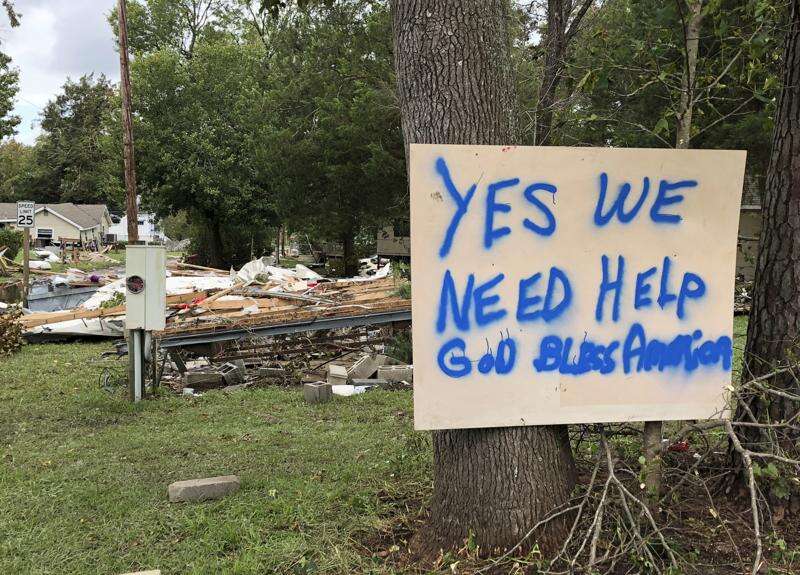 SPEED
LIMIT
25
YES WE
NEED HelP
GoD BLess